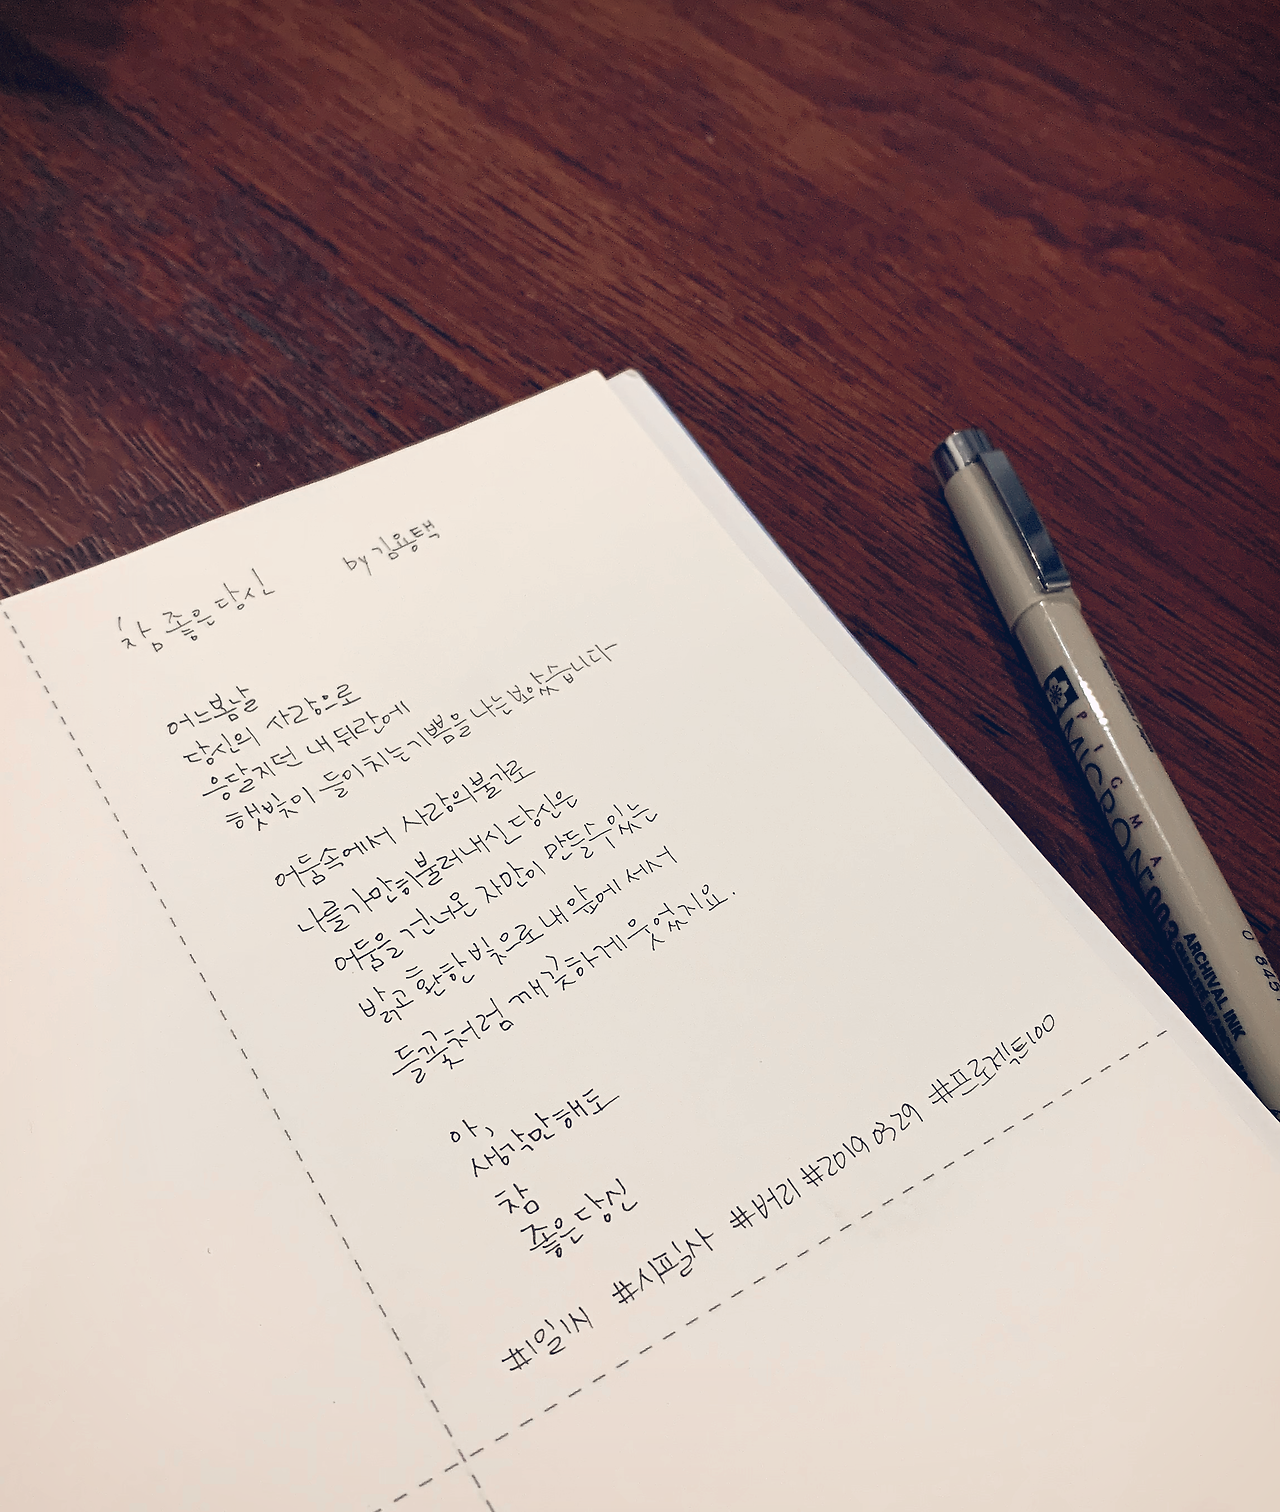 '참 좋은 당신 by 김용택
어느 봄날
당신의 사랑으로
응달지던 내 뒤란에
햇빛이 들이치는 기쁨을 나는 보았습니다
어둠속에서 사랑의 불가로
나를 가만히 불러내신 당신은
어둠을 건너온 자만이 만들 수 있는
밝고 환한 빛으로 내 앞에 서서
들꽃처럼 깨끗하게 웃었지요.
아,
생각만 해도
참
좋은 당신
#1일1시 #시필사 #버리 #2019 0329 #프로젝트100
PIGMA
MICRON
003
ARCHIVAL INK